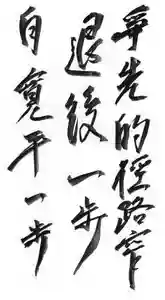 爭先的徑路窄
退後一步
自寬平一步